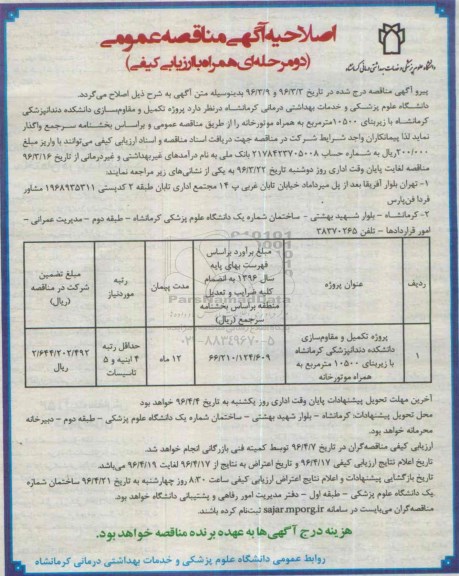 اصلاحیه آگهی مناقصه عمومی
(دو مرحله‌ای همراه با ارزیابی کیفی)
دانشگاه علوم پزشکی و خدمات بهداشتی درمانی کرمانشاه
پیرو آگهی مناقصه درج شده در تاریخ ۹۶/۳/۲ و ۹۶/۳/۹ بدینوسیله متن آگهی به شرح ذیل اصلاح می‌گردد.
دانشگاه علوم پزشکی و خدمات بهداشتی درمانی کرمانشاه درنظر دارد پروژه تکمیل و مقاوم‌سازی دانشکده دندانپزشکی
کرمانشاه با زیربنای ۱۰۵۰۰ مترمربع به همراه موتورخانه را از طریق مناقصه عمومی و براساس بخشنامه سرجمع واگذار
نماید لذا پیمانکاران واجد شرایط شرکت در مناقصه جهت دریافت اسناد مناقصه و اسناد ارزیابی کیفی می‌توانند با واریز مبلغ
۲۰۰/۰۰۰ ریال به شماره حساب ۲۱۷۸۴۲۳۷۰۵۰۰۸ بانک ملی به نام درآمدهای غیربهداشتی و غیردرمانی از تاریخ ۹۶/۳/۱۶
مناقصه لغایت پایان وقت اداری روز دوشنبه تاریخ ۹۶/۳/۲۲ به یکی از نشانی‌های زیر مراجعه نمایند:
۱- تهران بلوار آفریقا بعد از پل میرداماد خیابان تابان غربی پ ۱۴ مجتمع اداری تابان طبقه ۲ کدپستی ۱۹۶۸۹۳۵۳۱۱ مشاور
فردا فن‌پارس
۲- کرمانشاه - بلوار شهید بهشتی - ساختمان شماره یک دانشگاه علوم پزشکی کرمانشاه - طبقه دوم - مدیریت عمرانی -
امور قراردادها - تلفن ۳۸۳۷۰۲۶۵
ردیف
عنوان پروژه
مبلغ برآورد براساس فهرست بهای پایه سال ۱۳۹۶ به انضمام کلیه ضرایب و تعدیل منطقه براساس بخشنامه سرجمع (ریال)
مدت پیمان
رتبه موردنیاز
مبلغ تضمین شرکت در مناقصه (ریال)
۱
پروژه تکمیل و مقاوم‌سازی دانشکده دندانپزشکی کرمانشاه با زیربنای ۱۰۵۰۰ مترمربع به همراه موتورخانه
۶۶/۲۱۰/۱۲۴/۶۰۹
۱۲ ماه
حداقل رتبه ۴ ابنیه و ۵ تاسیسات
۲/۶۴۴/۲۰۲/۴۹۲ ریال
ParsNamadData
۰۲۱-۸۸۳۴۹۶۷۰-۵
آخرین مهلت تحویل پیشنهادات پایان وقت اداری روز یکشنبه به تاریخ ۹۶/۴/۴ خواهد بود
محل تحویل پیشنهادات: کرمانشاه - بلوار شهید بهشتی - ساختمان شماره یک دانشگاه علوم پزشکی - طبقه دوم - دبیرخانه
محرمانه خواهد بود.
ارزیابی کیفی مناقصه‌گران در تاریخ ۹۶/۴/۷ توسط کمیته فنی بازرگانی انجام خواهد شد.
تاریخ اعلام نتایج ارزیابی کیفی ۹۶/۴/۱۷ و تاریخ اعتراض به نتایج از ۹۶/۴/۱۷ لغایت ۹۶/۴/۱۹ می‌باشد
تاریخ بازگشایی پیشنهادات و اعلام نتایج اعتراض ارزیابی کیفی ساعت ۸:۳۰ روز چهارشنبه به تاریخ ۹۶/۴/۲۱ ساختمان شماره
یک دانشگاه علوم پزشکی - طبقه اول - دفتر مدیریت امور رفاهی و پشتیبانی دانشگاه خواهد بود.
مناقصه‌گران می‌بایست در سامانه sajar.mporg.ir ثبت‌نام کرده باشند.
هزینه درج آگهی‌ها به عهده برنده مناقصه خواهد بود.
روابط عمومی دانشگاه علوم پزشکی و خدمات بهداشتی درمانی کرمانشاه